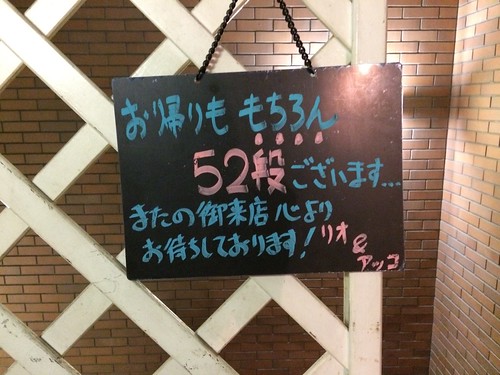 お帰りも もちろん
52段ございます…
またの御来店心より
お待ちしております!
リオ
&
アッコ